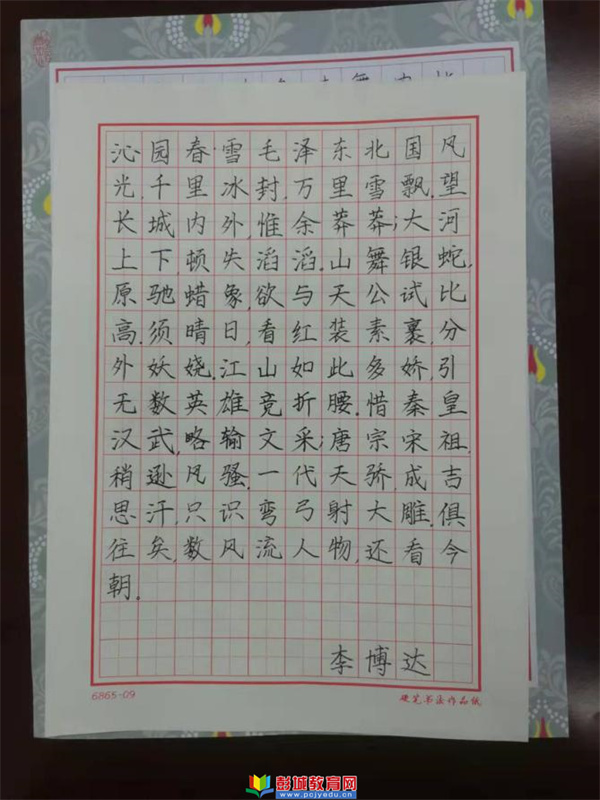 沁园春·雪毛泽东北国风
光,千里冰封,万里雪飘。望
长城内外,惟余莽莽;大河
上下,顿失滔滔。山舞银蛇,
原驰蜡象,欲与天公试比
高。须晴日,看红装素裹,分
外妖娆。江山如此多娇,引
无数英雄竞折腰。惜秦皇
汉武,略输文采;唐宗宋祖,
稍逊风骚。一代天骄,成吉
思汗,只识弯弓射大雕。俱
往矣,数风流人物,还看今
朝。
李博达
6865-09 硬笔书法作品纸
彭城教育网
www.pcjyedu.cn